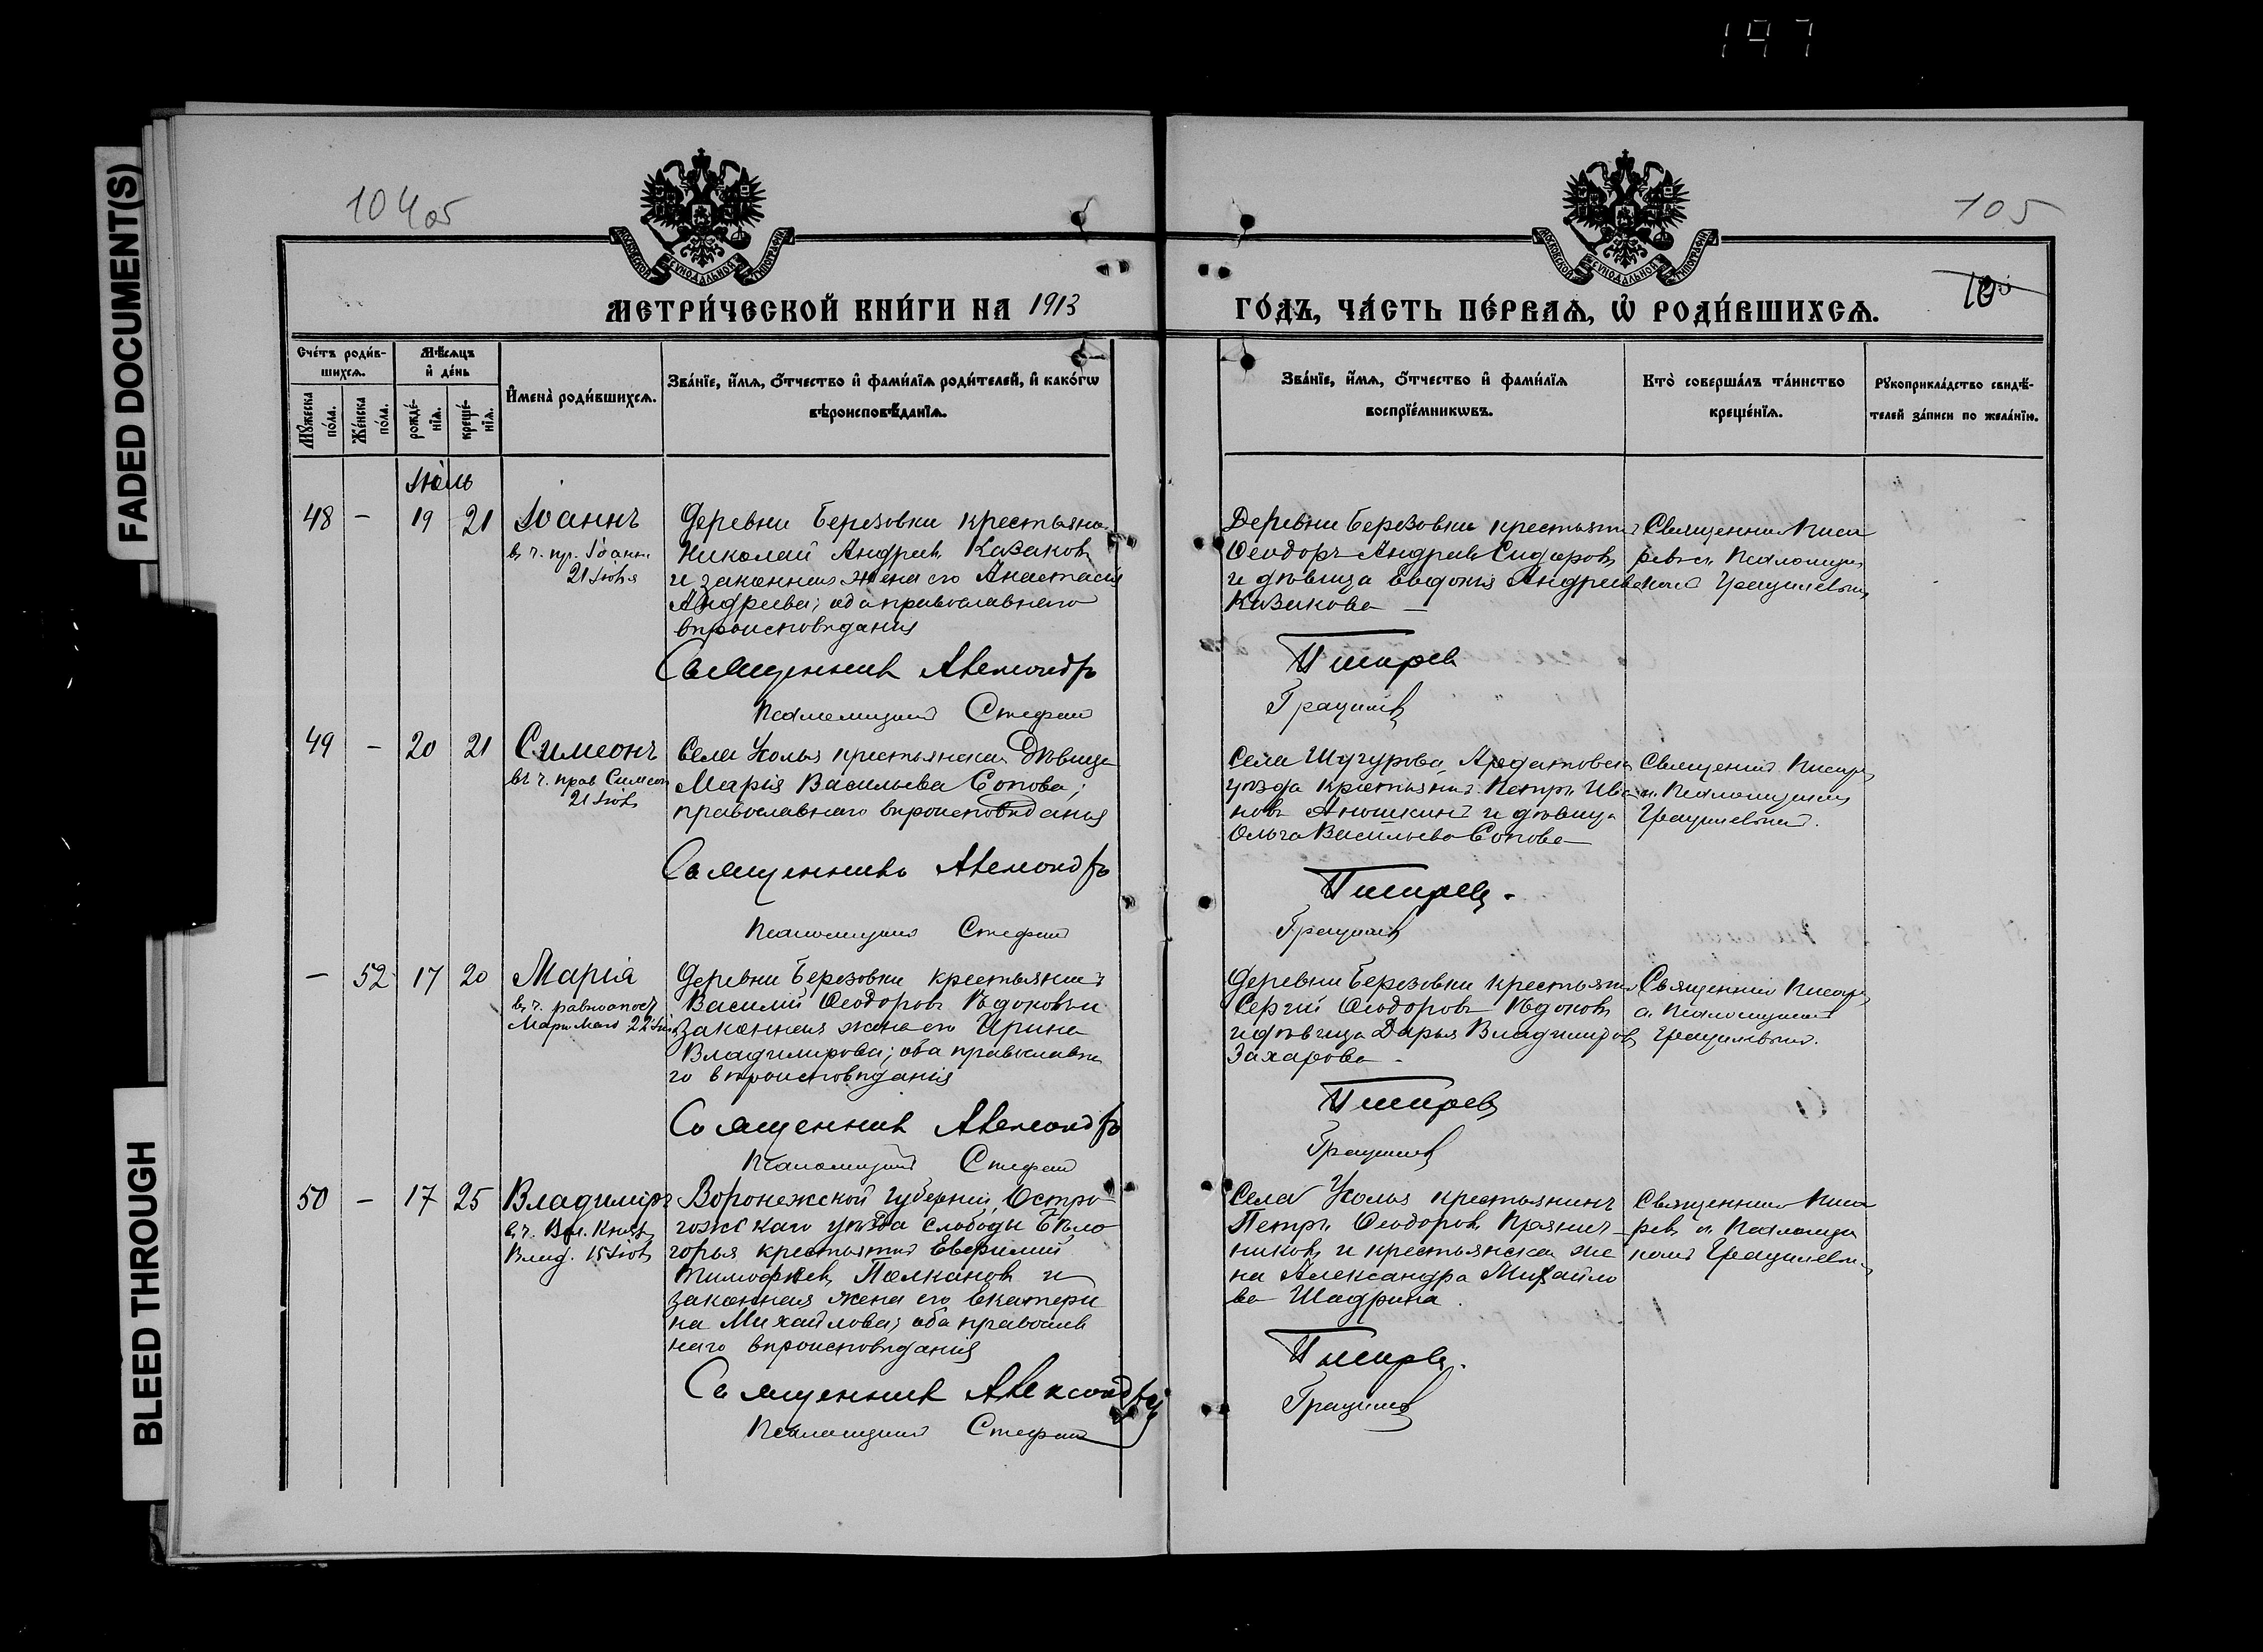 197
FADED DOCUMENT(S)
BLEED THROUGH
104об
105
МОСКОВСКОЙ СѴНОДАЛЬНОЙ ТИПОГРАФІИ
МОСКОВСКОЙ СѴНОДАЛЬНОЙ ТИПОГРАФІИ
МЕТРИ́ЧЕСКОЙ КНИ́ГИ НА 1913
ГО́ДЪ, ЧА́СТЬ ПЕ́РВАѦ, Ѡ РОДИ́ВШИХСѦ.
Сче́тъ роди́в-
шихсѧ.
Мꙋ́жеска по́ла.
Же́нска по́ла.
Мѣ́сѧцъ и де́нь
рожде́-нїѧ.
креще́-нїѧ.
Имена̀ роди́вшихсѧ.
Зва́нїе, и́мѧ, о́тчество и фами́лїѧ роди́телей, и како́гѡ
вѣроисповѣ́данїѧ.
Зва́нїе, и́мѧ, о́тчество и фами́лїѧ
воспрїе́мникѡвъ.
Кто̀ соверша́лъ та́инство
креще́нїѧ.
Рꙋкоприкла́дство свидѣ́-
телей за́писи по жела́нїю.
Іюль
48 – 19 21 Іоаннъ
в ч. пр. Іоанн
21 Іюля
Деревни Березовки крестьянин
Николай Андреев Казаков
и законная жена его Анастасія
Андреева; оба православнаго
вѣроисповѣданія
Священник Александръ
Псаломщикъ Стефан
Деревни Березовки крестьянин
Ѳеодоръ Андреев Сидоров
и дѣвица Евдокія Андреева
Казакова –
Писарев
Грацилев
Священник Писа
рев и Псаломщи
ком Грацилевым
49 – 20 21 Симеонъ
въ ч. прав Симеон
21 Іюля
Села Усолья крестьянская дѣвица
Марія Васильева Сопова;
православнаго вѣроисповѣданія
Священникъ Александръ
Псаломщикъ Стефан
Села Шугурова, Ардатовска
уѣзда крестьянин Петръ Ива
новъ Аношкинъ и дѣвица
Ольга Васильева Сопова –
Писарев.
Грацилев
Священник Писарев
и Псаломщиком
Грацилевым.
– 52 17 20 Марія
в ч. равноапост
Мар. Магд 22 Іюля
Деревни Березовки крестьянинъ
Василій Ѳеодоров Ѣдоков и
законная жена его Ирина
Владимирова; оба православна
го вѣроисповѣданія
Священник Александръ
Псаломщикъ Стефан
Деревни Березовки крестьянин
Сергій Ѳеодоров Ѣдоков
и дѣвица Дарья Владимиров
Захарова –
Писарев
Грацилев
Священник Писарев
и Псаломщиком
Грацилевым.
50 – 17 25 Владиміръ
в ч. Вел. Князя
Влад. 15 Іюля
Воронежской губерніи, Остро-
гожскаго уѣзда слободы Бѣло
горья крестьянин Евфимій
Тимофеев Полканов и
законная жена его Екатери
на Михайлова; оба православ
наго вѣроисповѣданія
Священник Александръ
Псаломщикъ Стефан
Села Усолья крестьянинъ
Петръ Ѳеодоров Прянич
ников и крестьянская же
на Александра Михайло
ва Шадрина.
Писарев.
Грацилев
Священник Писа
рев и Псаломщи
ком Грацилевым